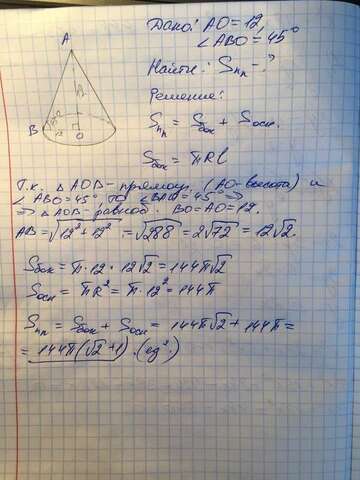 Дано: AO=12,
∠ABO=45°
Найти: Sпп-?
A
12
B
45°
O
Решение:
Sпп = Sбок + Sосн.
Sбок = πRl
Т.к. △AOB-прямоуг. (AO-высота) и
∠ABO=45° то ∠BAO=45° ⇒
⇒ △AOB-равноб. BO=AO=12.
AB=√12²+12² =√288=2√72=12√2.
Sбок=π·12·12√2=144π√2
Sосн=πR²=π·12²=144π
Sпп=Sбок+Sосн=144π√2+144π=
=144π(√2+1).(ед².)